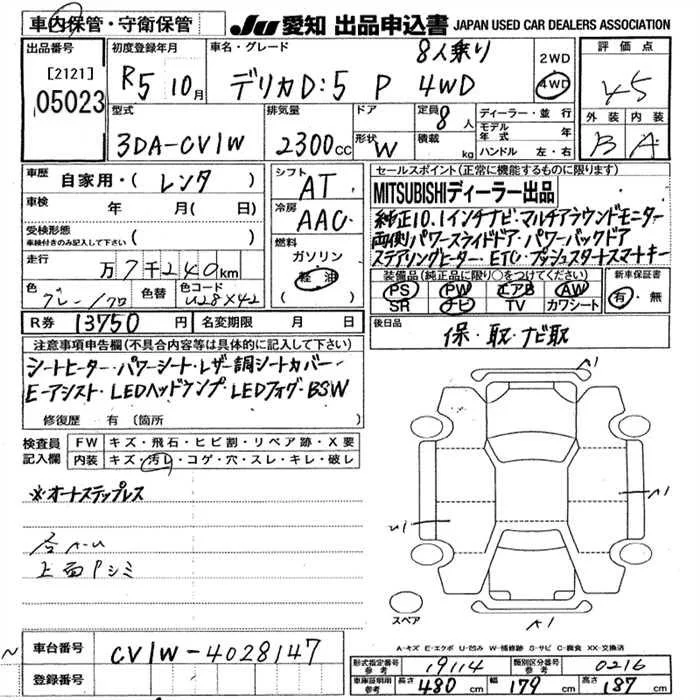 車内保管・守衛保管
JU 愛知 出品申込書 JAPAN USED CAR DEALERS ASSOCIATION
出品番号
[2121]
05023
初度登録年月
R5 10月
車名・グレード
8人乗り
デリカD:5 P 4WD
2WD
4WD
評価点
4.5
外装 内装
B A
型式
3DA-CV1W
排気量
2300cc
ドア
形状 W
定員 8人
積載 kg
ディーラー・並行
モデル年式 年
ハンドル 左・右
車歴 自家用・(レンタ)
車検 年 月( 日)
受検形態
車検付きのみ記入して下さい ( )
走行 万7千240km
色 グレー/クロ
色替
色コード U28X42
シフト AT
冷房 AAC
燃料
ガソリン
軽油
セールスポイント(正常に機能するものに限ります)
MITSUBISHIディーラー出品
純正10.1インチナビ・マルチアラウンドモニター
両側パワースライドドア・パワーバックドア
ステアリングヒーター・ETC・プッシュスタートスマートキー
装備品(純正品に限り○をつけてください)
PS PW エアB AW
SR ナビ TV カワシート
新車保証書
有・無
R券 13750円
名変期限 月 日
後日品
保・取・ナビ取
注意事項申告欄(不具合内容等は具体的に記入して下さい)
シートヒーター・パワーシート・レザー調シートカバー・
E-アシスト・LEDヘッドランプ・LEDフォグ・BSW
修復歴 有 (箇所 )
検査員記入欄
FW キズ・飛石・ヒビ割・リペア跡・X要
内装 キズ・汚レ・コゲ・穴・スレ・キレ・破レ
※オートステップレス
各A-U
上面Pシミ
A1
A1
U1
A1
スペア
A-キズ E-エクボ U-凹み W-補修跡 S-サビ C-腐食 XX-交換済
車台番号 CV1W-4028147
登録番号
形式指定番号 参考 19114
類別区分番号 参考 0216
車庫証明用 参考 長さ 480cm 幅 179cm 高さ 187cm